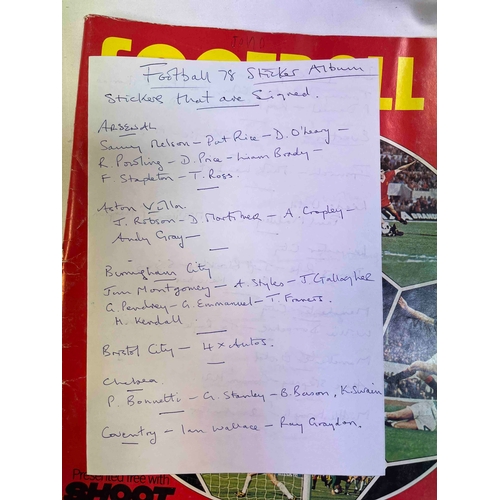 FOOTBALL
Football 78 Sticker Album
Stickers that are Signed.
ARSENAL
Sammy Nelson - Pat Rice - D. O'Leary -
R Powling - D. Price - Liam Brady -
F Stapleton - T. Ross.
Aston Villa
J. Robson - D Mortimer - A. Cropley -
Andy Gray -
Birmingham City
Jim Montgomery - A. Styles - J Gallagher
G. Pendrey - G. Emmanuel - T. Francis.
H. Kendall
Bristol City - 4 x Autos.
Chelsea
P. Bonnetti - G. Stanley - B. Bason, K. Swain
Coventry - Ian Wallace - Ray Graydon.
Presented free with
SHOOT